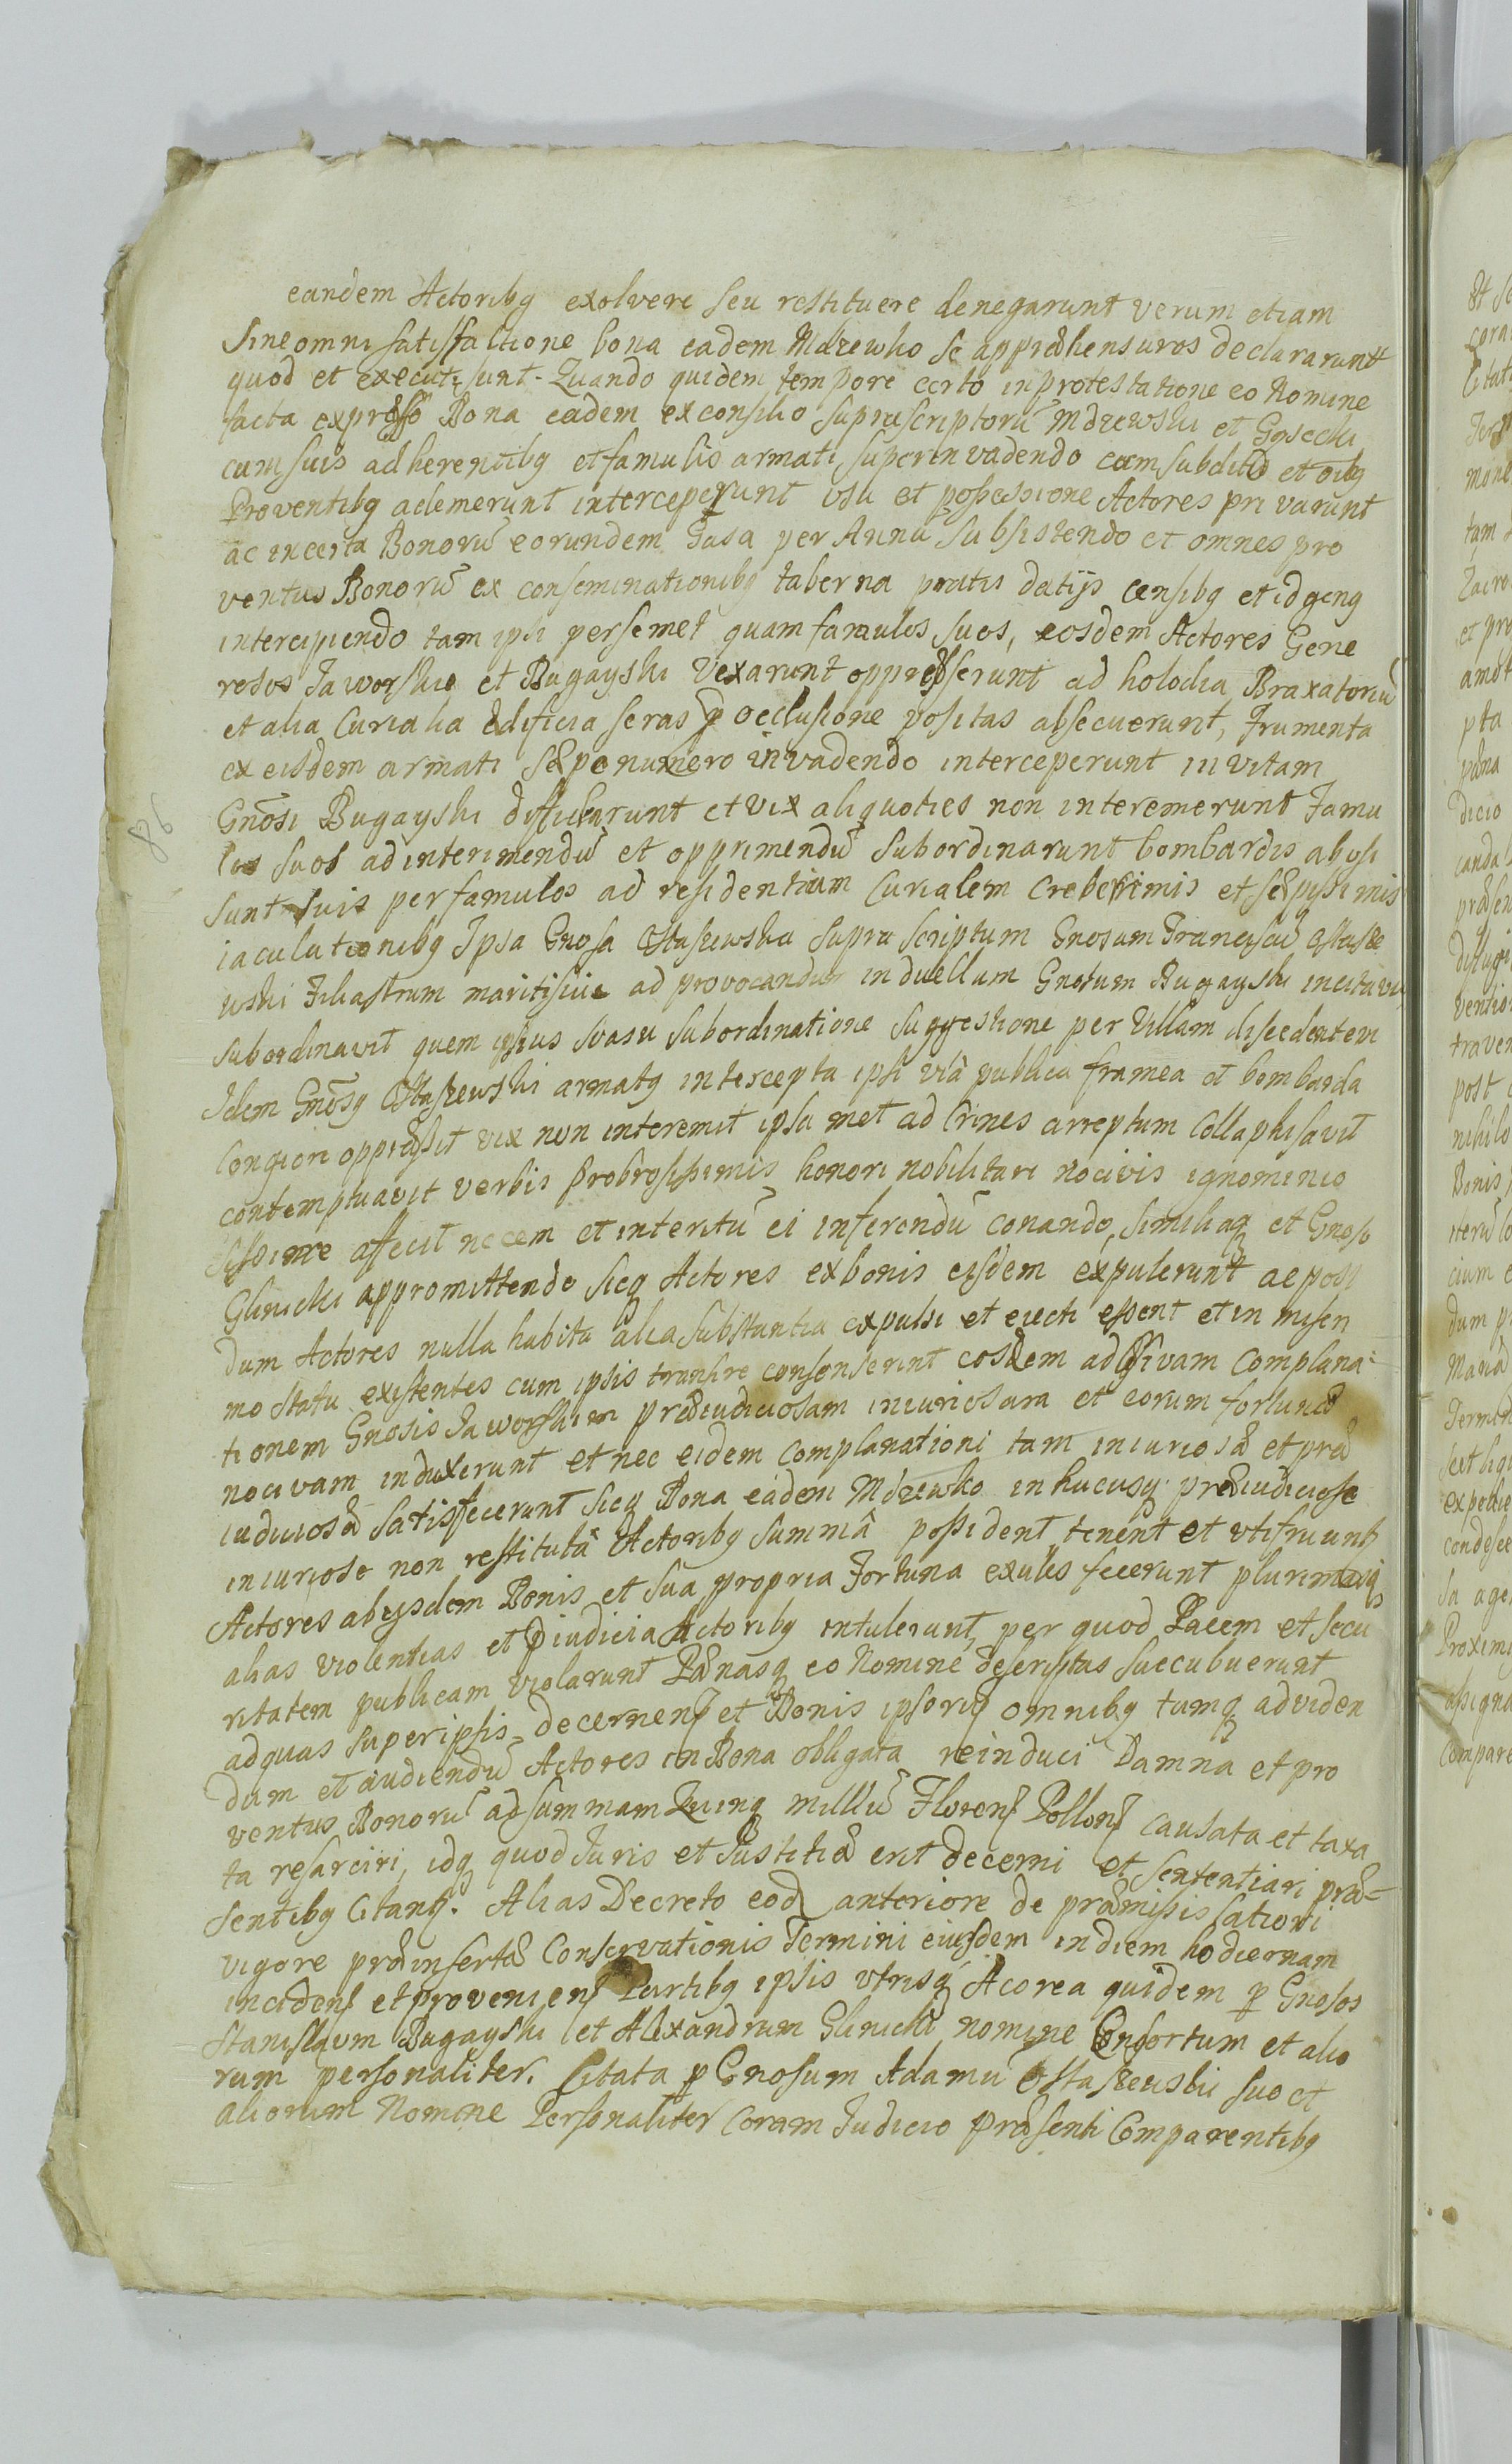 eandem Actoribg exolvere seu restituere denegarunt verum etiam
sine omni satisfactione bona eadem Mdzewko se appræhensuros declararunt
quod et executi sunt. Quando quidem tempore certo in protestatione eo Nomine
facta expresso Bona eadem ex consilio supra scriptorũ Mdzewski et Gnsecki
cum suis adherentibg et famulis armati, superinvadendo cum subditis et oibg
Proventibg ademerunt interceperunt usu et possessione Actores privarunt
ac in certa Bonorũ eorundem Casa per Annũ subsistendo et omnes pro
ventus Bonorũ ex conseminationibg taberna pratis datijs censibg et id geng
intercipiendo tam ipsi persemet quam famulos suos, eosdem Actores Gene
rosos Jaworskie et Bugayski vexarunt oppræsserunt ad holodia Braxatoriũ
et alia Curialia ædificia seras p occlusione positas absecuerunt, Frumenta
ex eisdem armati sæpenumero invadendo interceperunt in vitam
Gnõsi Bugayski diffidarunt et vix aliquoties non interemerunt Famu
los suos ad interimendũ et opprimendũ subordinarunt bombardis abusi
sunt suis per famulos ad residentiam Curialem creberrimis et sæpissimis
iaculationibg Ipsa Gnosa Ostaszewska supra scriptum Gnosum Franciscũ Ostasze
wski Filiastrum maritisive ad provocandum in duellum Gnosum Bugayski incitavit
subordinavit quem ipsius svasu subordinatione suggestione per Villam discedentem
Idem Gnõsg Ostaszewski armatg intercepta ipsi viâ publica framea et bombarda
longiori oppræssit vix non interemit ipsa met ad Crines arreptum Collaphisavit
contemptuavit verbis probrosissimis honori nobilitari nocivis ignominio
sissime affecit necem et interitũ ei inferendũ conando, similiaq et Gnoso
Glinicki appromittendo sicq Actores ex bonis eisdem expulerunt ac post
dum Actores nulla habita alia substantia expulsi et eiecti essent et in miseri
mo statu existentes cum ipsis transire consenserint eosdem ad quvam Complana-
tionem Gnosis Jaworskim præiudiciosam iniuriosam et eorum fortunæ
nocivam induxerunt et nec eidem complanationi tam iniuriosæ et præ
iudiciosæ satisfecerunt sicq Bona eadem Mdzewko in hucusq præiudiciose
iniuriose non restitutâ Actoribg summâ possident tenent et utifruunt
Actores ab eisdem Bonis et sua propria Fortuna exules fecerunt plurimasq
alias violentias et piudicia Actoribg intulerunt, per quod Pacem et secu
ritatem publicam violarunt Pænasq eo Nomine descriptas succubuerunt
ad quas super ipsis decernen et Bonis ipsorũ omnibg tumq ad viden
dum et audiendũ Actores in Bona obligata reinduci Damna et pro
ventus Bonorũ ad summam Quinq milliũ Floren Pollon causata et taxa
ta resarciri, idq quod Juris et Justitiæ erit decerni et sententiari præ-
sentibg Citang. Alias Decreto eod anteriore de præmissis lationi
vigore præinsertæ Conservationis Termini eiusdem in diem hodiernam
inciden et provenien Partibg ipsis utrisq Acorea quidem p Gnosos
Stanislaum Bugayski et Alexandrum Glinicki nomine Consortum et alio
rum personaliter. Citata p Gnosum Adamũ Ostaszewski suo et
aliorum Nomine Personaliter Coram Judicio præsenti Comparentibg
86